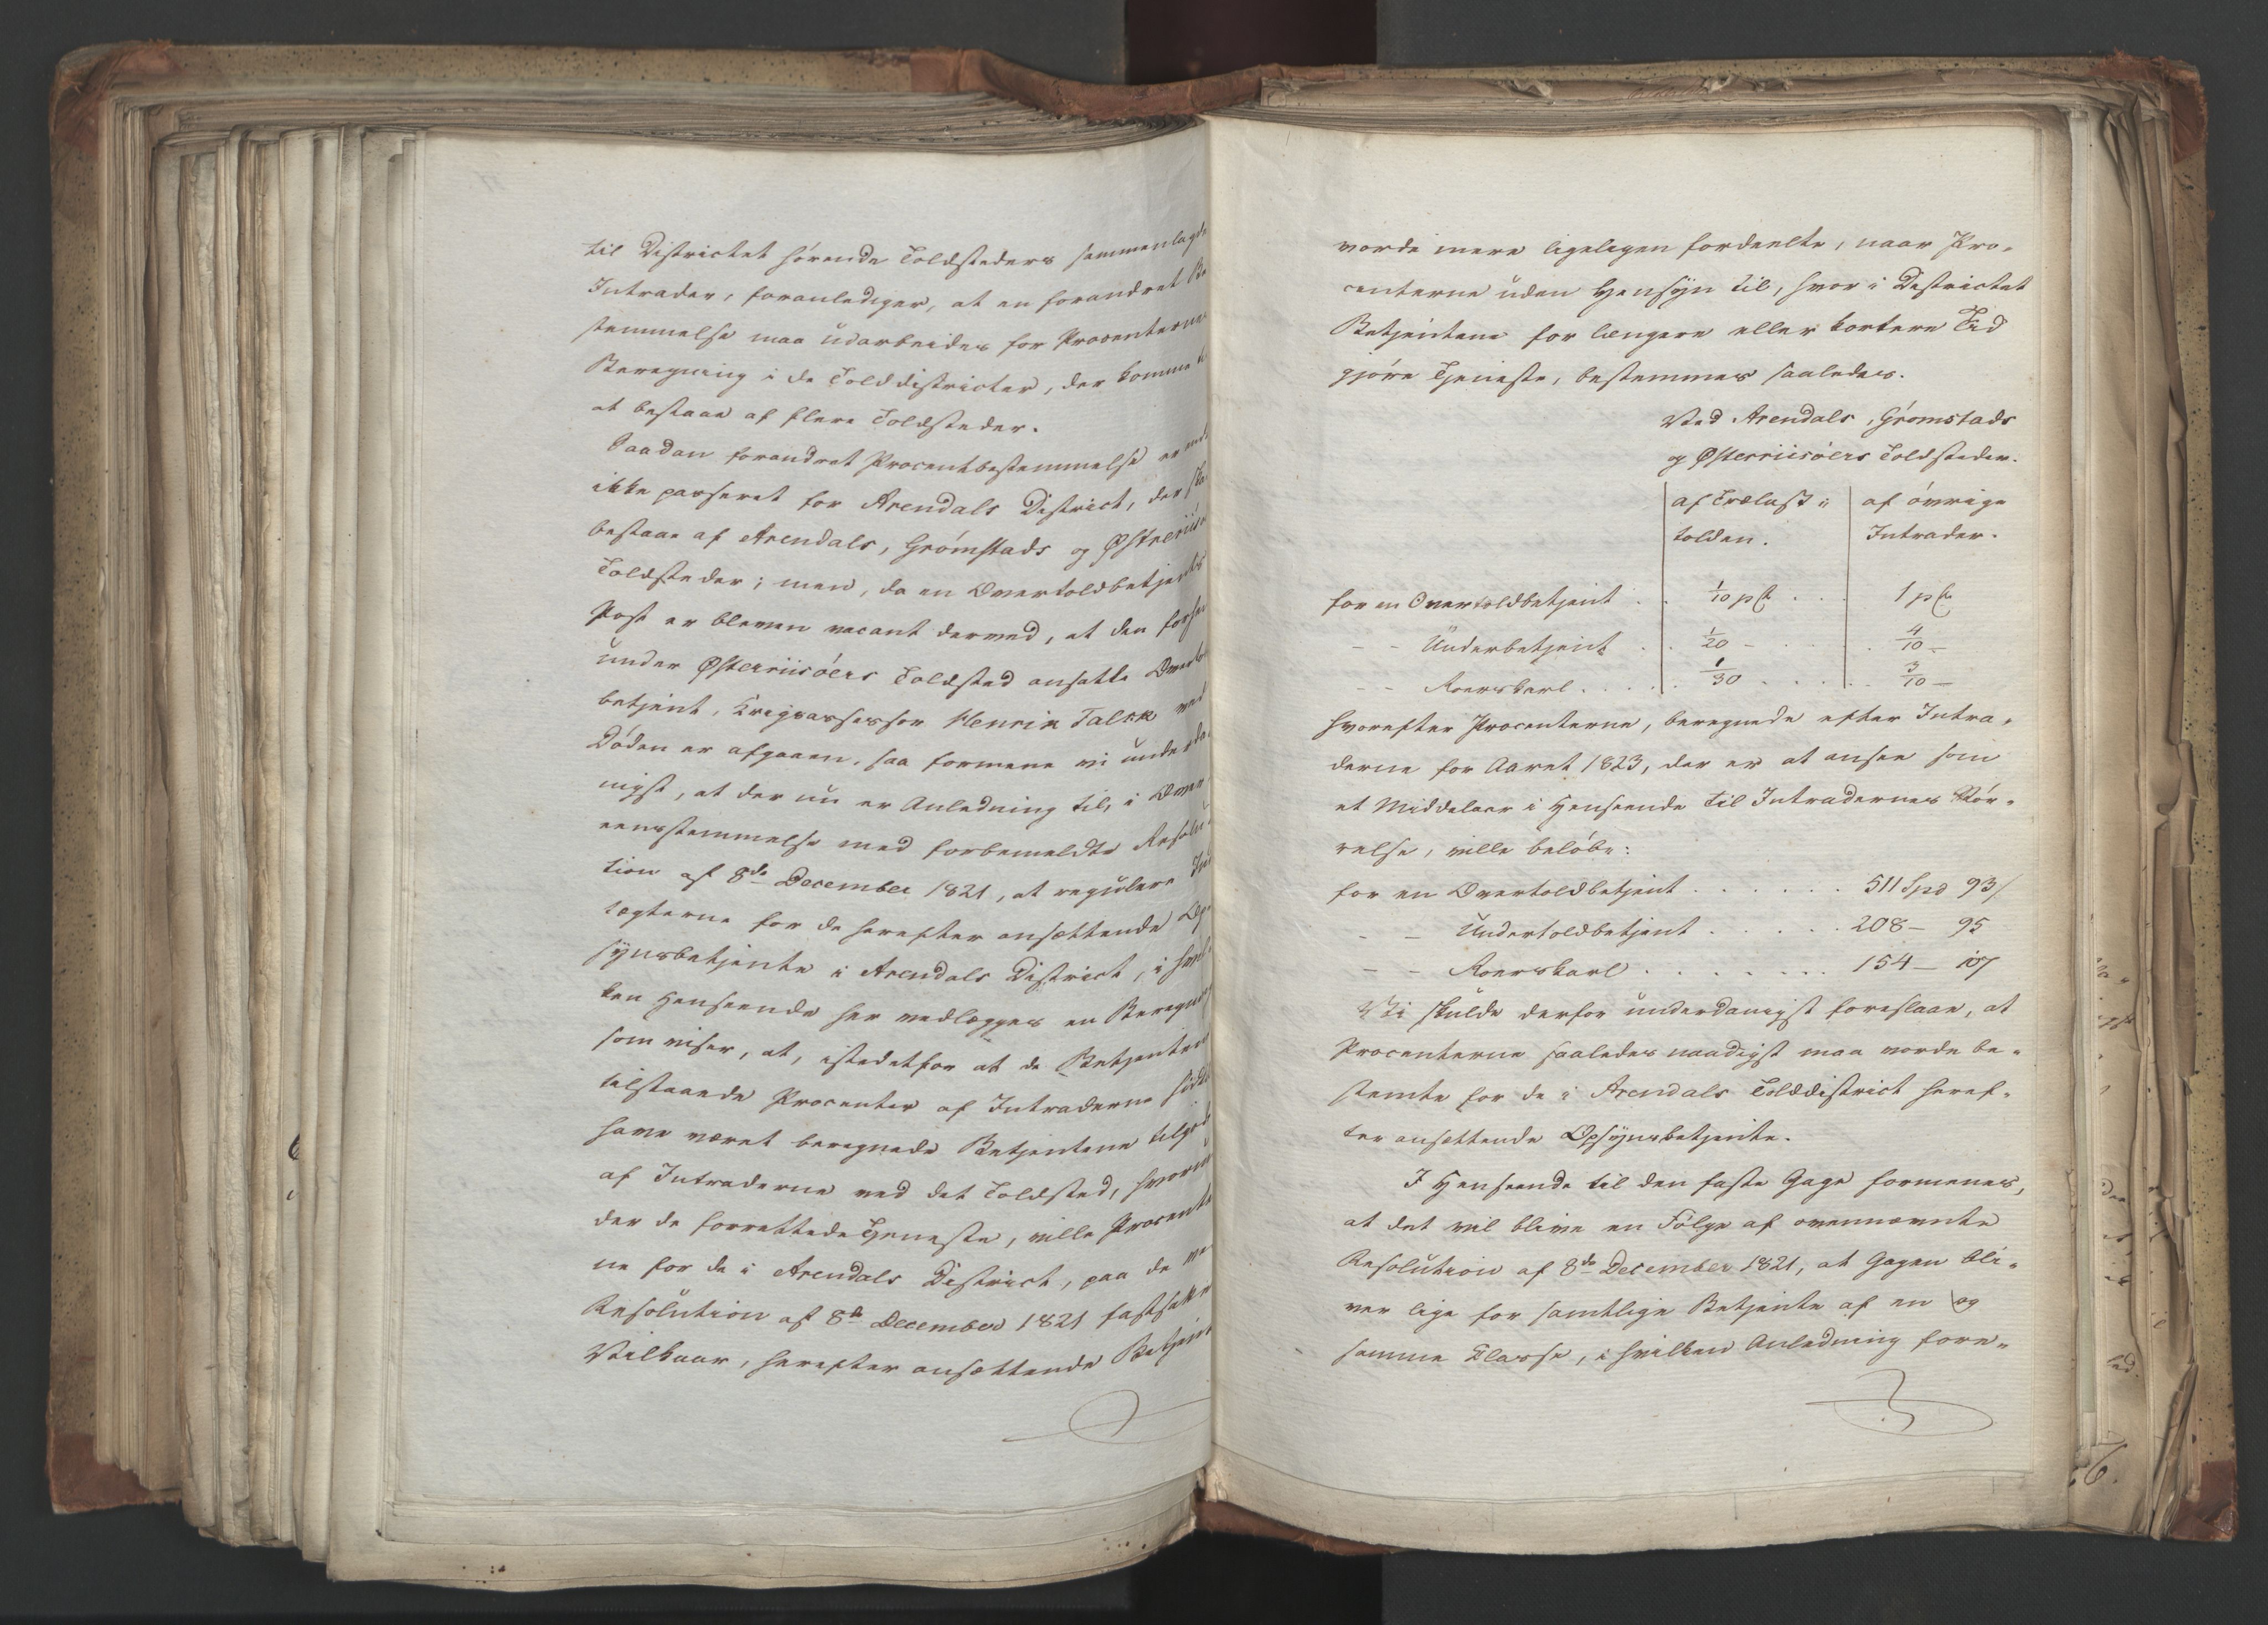 til Districtet hørende Toldsteders sammenlagde
Intrader, foranlediger, at en forandret Be
stemmelse maa udarbeides for Procenternes
Beregning i de Tolddistricter, der komme
at bestaae af flere Toldsteder.
Saadan forandret Procentbestemmelse er
ikke passeret for Arendals District, der
bestaae af Arendals, Grømstads og Østeriisø
Toldsteder; men, da en Overtoldbetjents
Post er bleven vacant derved, at den
under Østerriisøers Toldsted ansatte Overtold
betjent, Krigsassessor Henrik Falck ved
Døden er afgaaen, saa formene vi underda
nigst, at der nu er Anledning til, i Over
eensstemmelse med forbemeldte Resolu
tion af 8de December 1821, at regulere Ind
tægterne for de herefter ansættende Op
synsbetjente i Arendals District, i hvil
ken Henseende her vedlægges en Beregning
som viser, at, istedetfor at de Betjentene
tilstaaede Procenter af Intraderne
have været beregnede Betjentene
af Intraderne ved det Toldsted, hvorun
der de forrettede Tjeneste, ville Procenter
ne for de i Arendals District, paa de ved
Resolution af 8de December 1821 fastsatte
Vilkaar, herefter ansættende Betjente
vorde mere ligeligen fordeelte, naar Pro-
centerne uden Hensyn til, hvor i Districtet
Betjentene for længere eller kortere Tid
gjøre Tjeneste, bestemmes saaledes.
Ved Arendals, Grømstads
og Østerriisøers Toldsteder.
af Trælast- af øvrige
tolden. Intrader.
for en Overtoldbetjent . . 1/10 pCt . . . 1 pCt
- - Underbetjent . . 1/20 - . . . 4/10 -
- - Roerskarl . . . . . 1/30 . . . . . 3/10 -
hvorefter Procenterne, beregnede efter Intra-
derne for Aaret 1823, der er at ansee som
et Middelaar i Henseende til Intradernes Stør-
relse, ville beløbe:
for en Overtoldbetjent . . . . . . 511 Spd 93 /
- - Undertoldbetjent . . . . . 208 - 95
- - Roerskarl . . . . . . . . 154 - 107
Vi skulde derfor underdanigst foreslaae, at
Procenterne saaledes naadigst maa vorde be-
stemte for de i Arendals Tolddistrict heref-
ter ansættende Opsynsbetjente.
I Henseende til den faste Gage formenes,
at det vil blive en Følge af ovennævnte
Resolution af 8de December 1821, at Gagen bli-
ver lige for samtlige Betjente af en og
samme Classe, i hvilken Anledning fore-